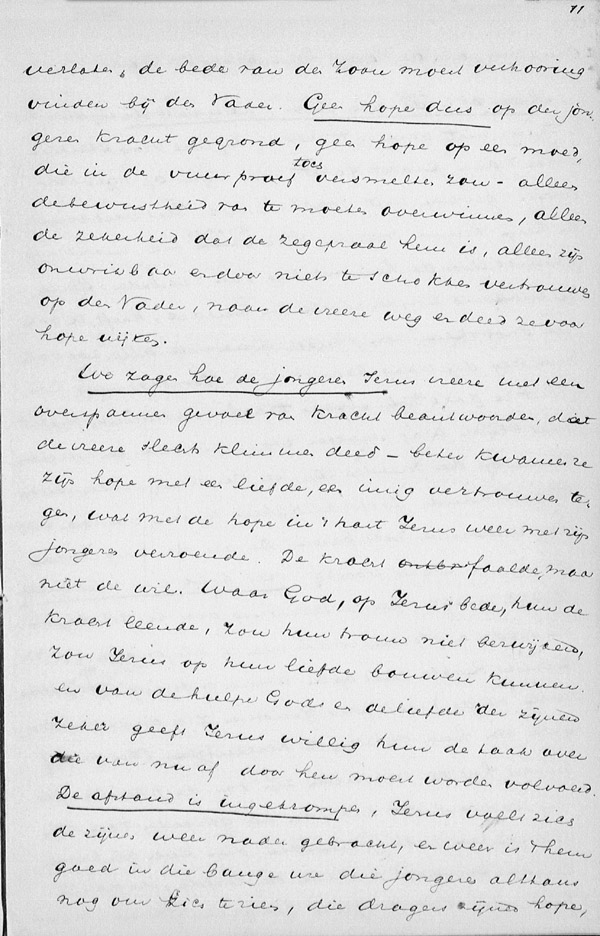 11
verlaten, de bede van den Zoon moest verhooring
vinden bij den Vader. Geen hope dus op der jon-
geren kracht gegrond, geen hope op een moed,
die in de vuurproef toch versmelten zou - alleen
de bewustheid van te moeten overwinnen, alleen
de zekerheid dat de zegepraal hem is, alleen zijn
onwrikbaar en door niets te schokken vertrouwen
op den Vader, nam de vreere weg en deed ze voor
hope wijken.
We zagen hoe de jongeren Jezus vreere met een
overspannen gevoel van kracht beantwoorden, dat
de vreere slechts klimmen deed - beter kwamen ze
zijn hope met een liefde, een innig vertrouwen te-
gen, wat met de hope in 't hart Jezus weer met zijn
jongeren verzoende. De kracht faalde, maar
niet de wil. Waar God, op Jezus' bede, hun de
kracht leende, zou hun trouw niet bezwijken,
zou Jezus op hun liefde bouwen kunnen.
en van de hulpe Gods en de liefde der zijnen
zeker geeft Jezus willig hun de taak over
die van nu af door hen moest worden volvoerd.
De afstand is ingekrompen, Jezus voelt zich
de zijnen weer nader gebracht, en weer is 't hem
goed in die bange ure die jongeren althans
nog om zich te zien, die dragers zijner hope,